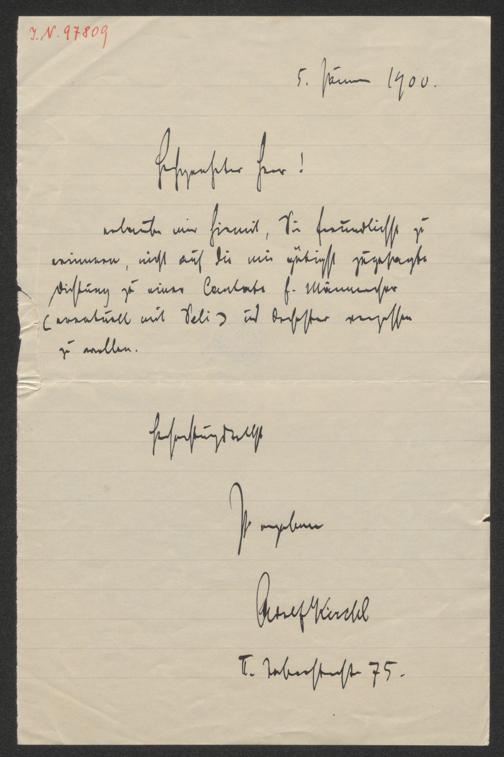 J.N. 97809
5. Jänner 1900.
Hochgeehrter Herr!
erlaube mir hiemit, Sie freundlichst zu
erinnern, nicht auf die mir gütigst zugesagte
Dichtung zu einer Cantate f. Männerchor
(eventuell mit Soli) und Orchester vergessen
zu wollen.
Hochachtungsvollst
Ihr ergebener
Adolf Kirchl
II. 75.